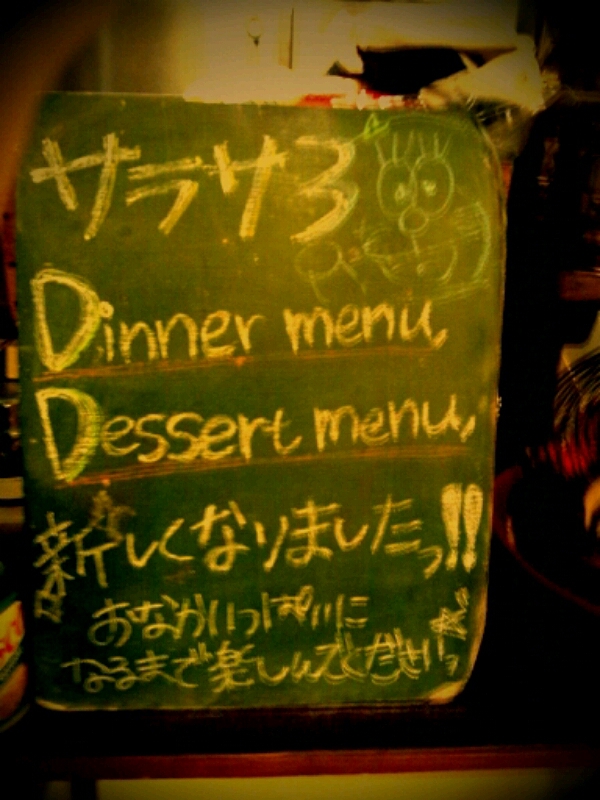 サラサ3
Dinner menu,
Dessert menu,
新しくなりましたっ!!
おなかいっぱいに
なるまで楽しんでくださいっ